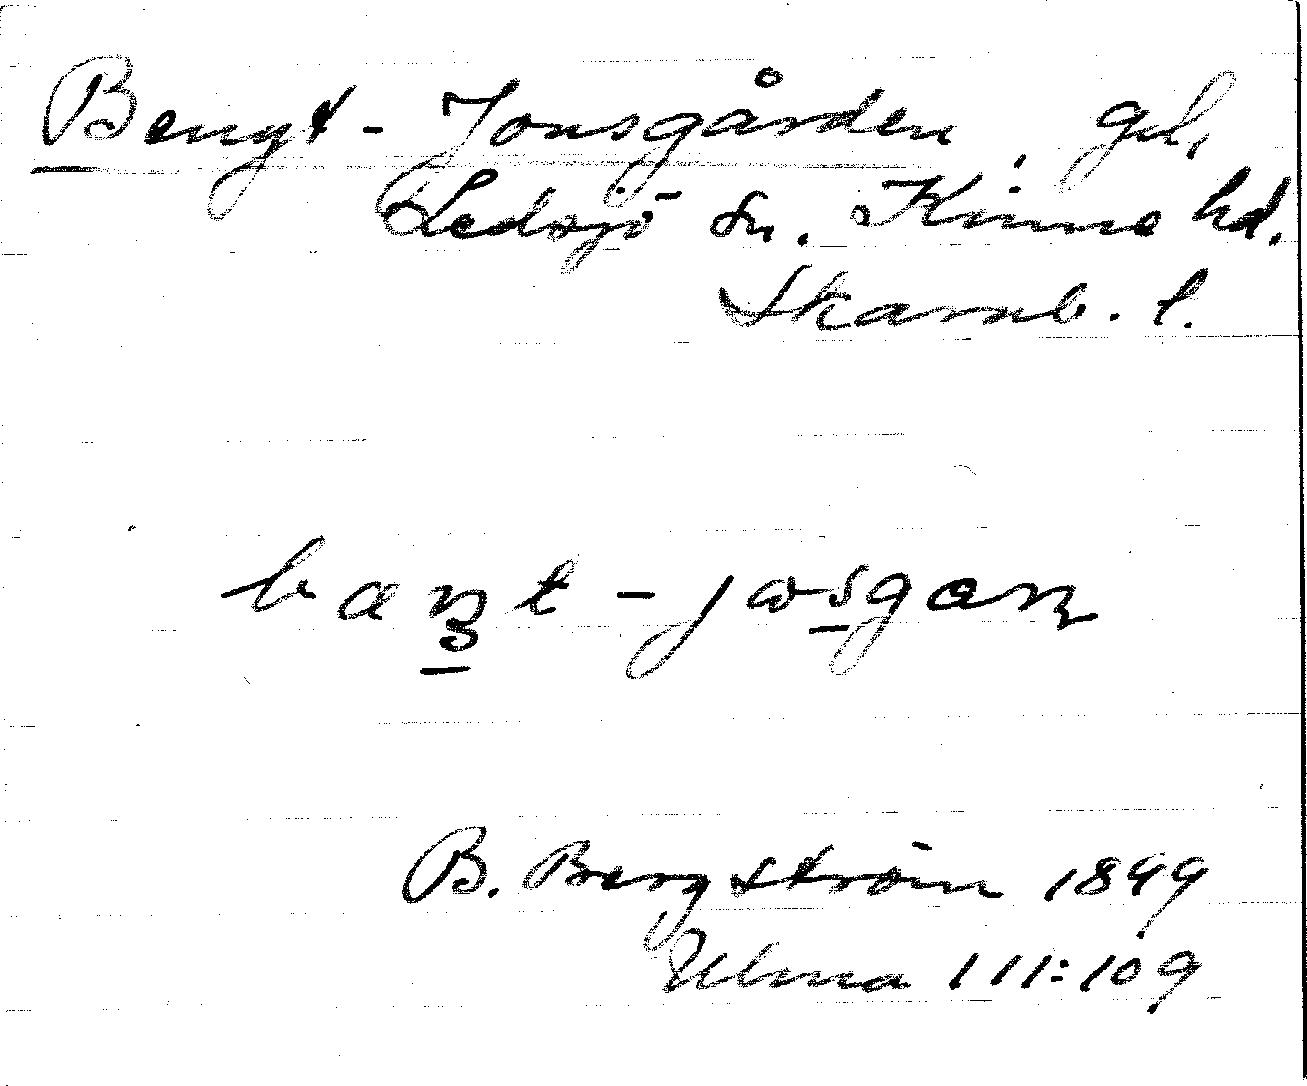 Bengt-Jonsgården, gd,
Ledsjö sn. Kinne hd.
Skarab. l.
B. Bergström 1899
Ulma 111:109